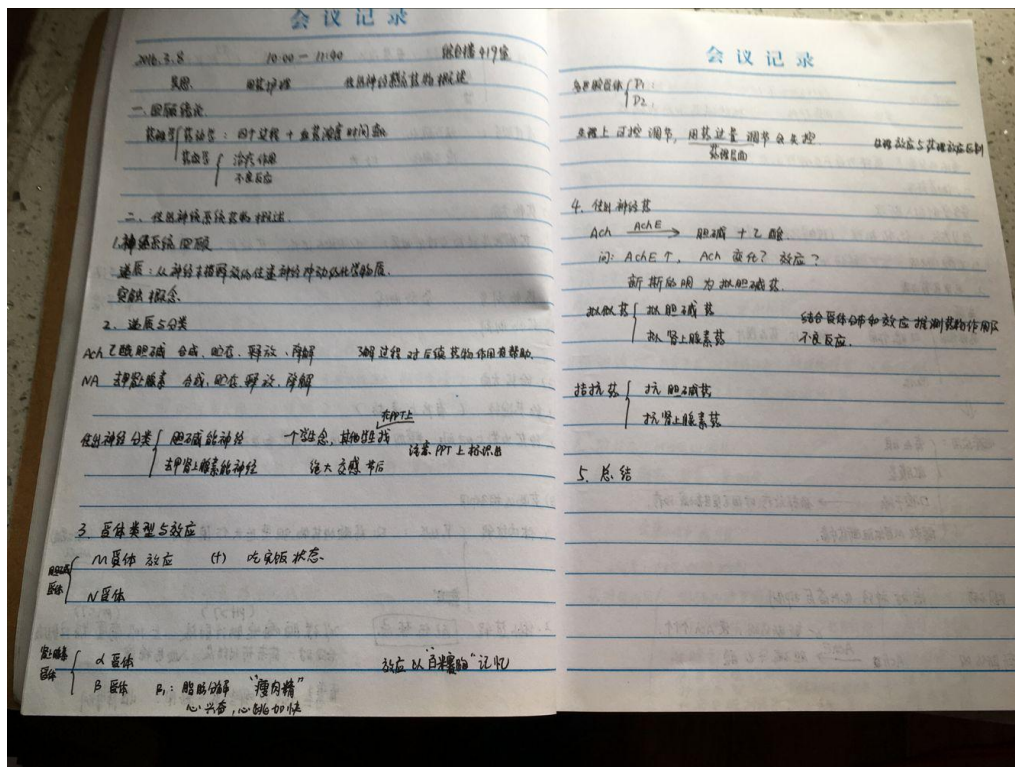 会议记录
2016.3.8 10:00 — 11:40 419室
用药护理 传出神经系统药物概述
一.回顾绪论.
药理学 药动学：四个过程 + 血药浓度时间曲线
药效学 治疗作用
不良反应
二、传出神经系统药物概述.
1.神经系统回顾
递质：从神经末梢释放的传递神经冲动的化学物质.
突触概念.
2. 递质与分类
Ach 乙酰胆碱 合成、贮存、释放、降解 了解过程对后续药物作用有帮助.
NA 去甲肾上腺素 合成、贮存、释放、降解
在PPT上
传出神经分类 胆碱能神经 一个学生念，其他学生找 请来PPT上标识出
去甲肾上腺素能神经 绝大交感节后
3. 受体类型与效应
胆碱受体 M受体 效应 (+) 吃完饭状态.
N受体
肾上腺素受体 α受体 效应以“ ”记忆
β受体 β₁：脂肪分解 “瘦肉精”
心兴奋，心跳加快
会议记录
多巴胺受体 D₁
D₂
生理上可控调节，用药过量调节会失控 生理效应与药理效应区别
药理层面
4. 传出神经药
Ach AchE → 胆碱 + 乙酸.
问：AchE↑，Ach 变化？效应？
新斯的明为拟胆碱药.
拟似药 拟胆碱药 结合受体分布和效应推测药物作用及
拟肾上腺素药 不良反应.
拮抗药 抗胆碱药
抗肾上腺素药
5. 总结